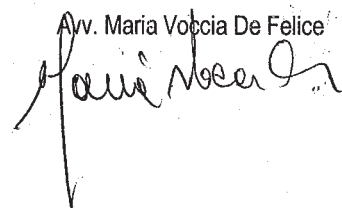 Avv. Maria Voccia De Felice
Maria